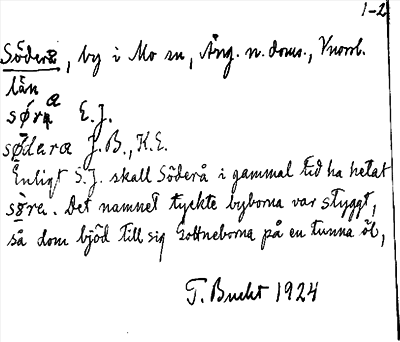 1-2
Söderå, by i Mo sn, Ång. n. doms., Vnorrl.
län
søra E.J.
sødera J.B., K.E.
Enligt E.J. skall Söderå i gammal tid ha hetat
søra. Det namnet tyckte byborna var styggt,
så dom bjöd till sig Gottneborna på en tunna öl,
T. Bucht 1924